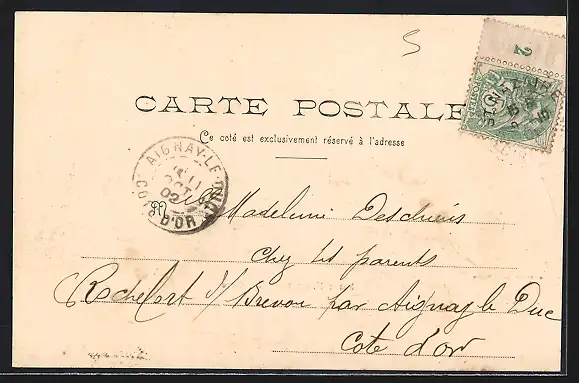 5
2
CARTE POSTALE
Ce coté est exclusivement réservé à l'adresse
AIGNAY-LE-DUC
11
OCT
02
COTE D'OR
Madeleine Deschcins
Chez ses parents
Rochefort s/ Brevon par Aignay le Duc
Cote d'or